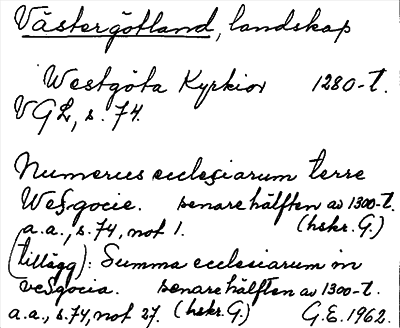 Västergötland, landskap
Westgöta Kyrkior 1280-t.
VGL, s. 74.
Numerus ecclesiarum terre
Wesgocie. senare hälften av 1300-t.
a.a., s. 74, not 1. (hskr. G.)
(tillägg): Summa ecclesiarum in
vesgocia. senare hälften av 1300-t.
a.a., s. 74, not 27. (hskr. G.) G.E. 1962.